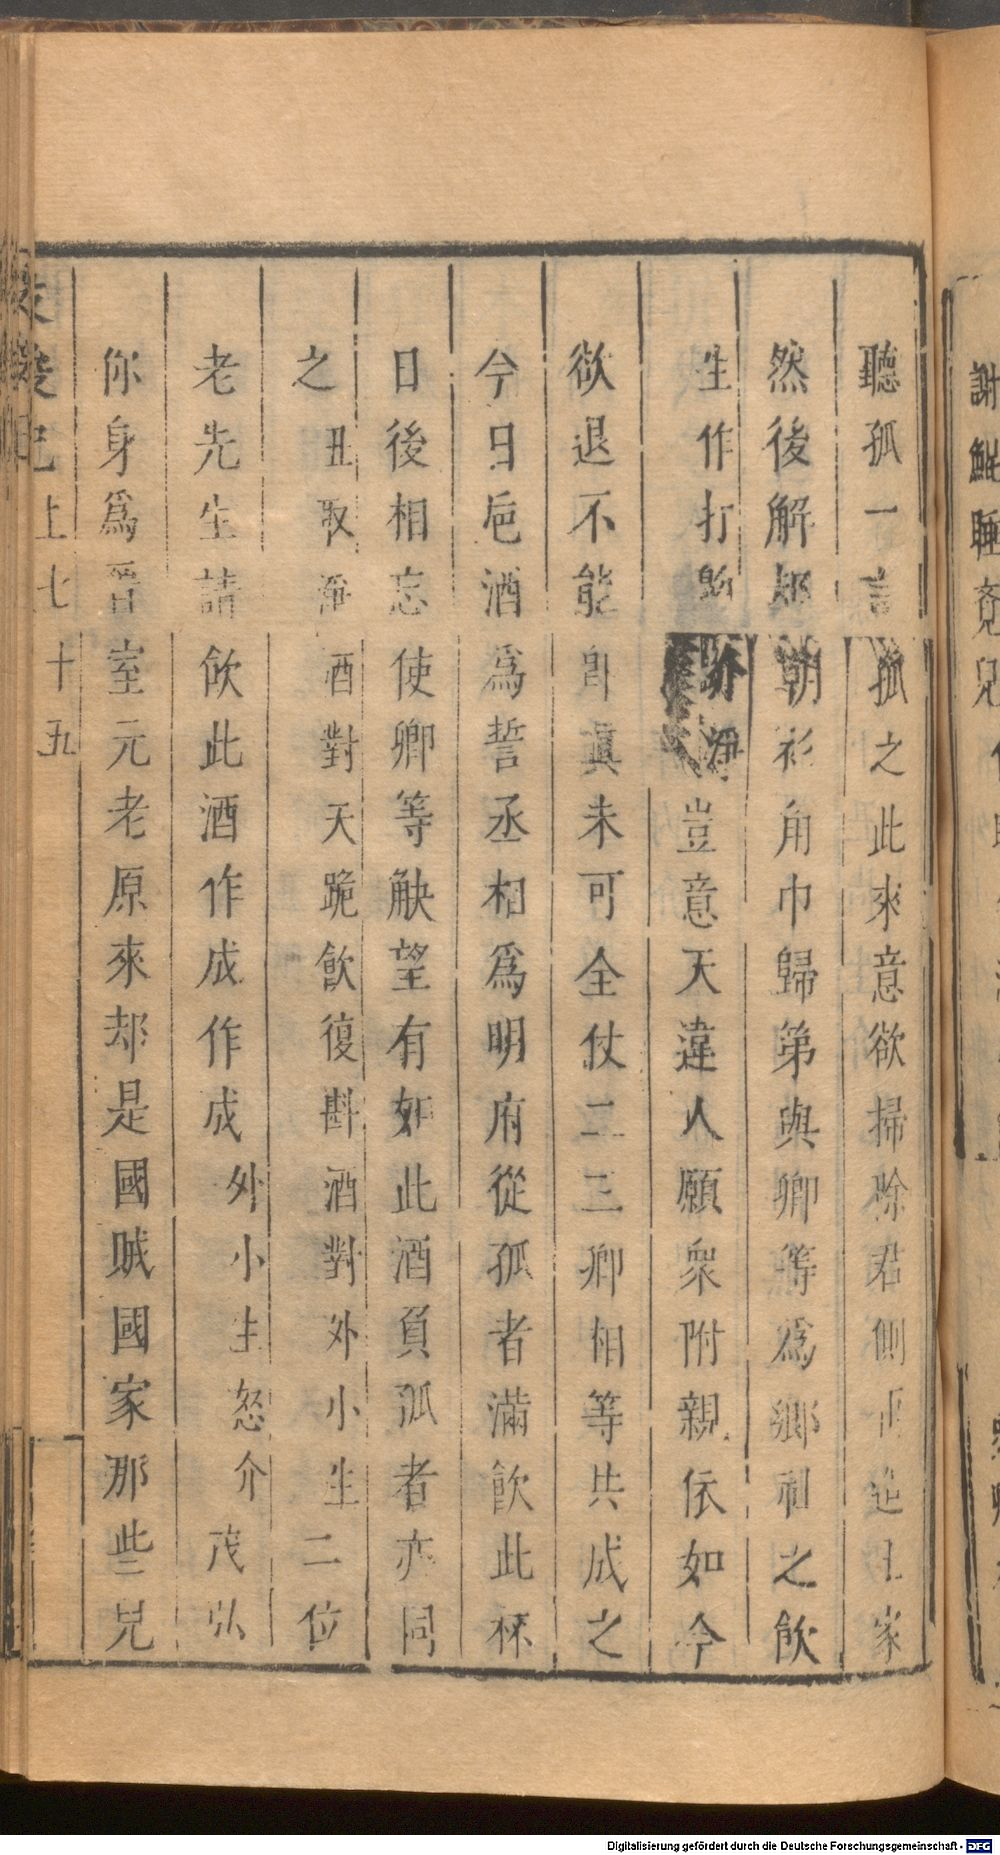 聽孤一言孤之此來意欲掃除君側再造王家
然後解郄朝衫角巾歸第與卿等為鄉社之飲
生作打跡跡淨豈意天違人願衆附親依如今
欲退不能卽真未可全仗二三卿相等共成之
今日巵酒為誓丞相為明府從孤者滿飲此杯
日後相忘使卿等觖望有如此酒負孤者亦同
之丑取淨酒對天跪飲復斟酒對外小生二位
老先生請飲此酒作成作成外小生怒介茂弘
你身為晋室元老原來却是國賊國家那些兒
上七十五
謝鯤睡
Digitalisierung gefördert durch die Deutsche Forschungsgemeinschaft - DFG